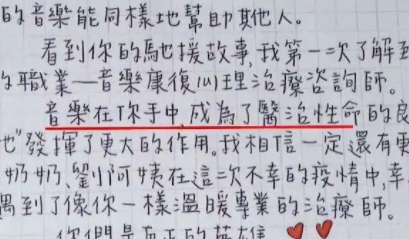 的音樂能同樣地幫助其他人。
看到你的馳援故事,我第一次了解到
職業—音樂康復心理治療咨詢師。
音樂在你手中,成為了醫治性命的良
也"發揮了更大的作用。我相信一定還有更
奶奶、劉阿姨在這次不幸的疫情中,幸
遇到了像你一樣溫暖專業的治療師。
你們是真正的英雄